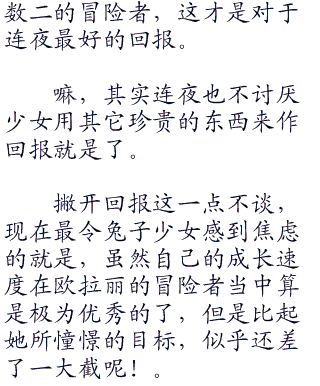 数二的冒险者，这才是对于
连夜最好的回报。
嘛，其实连夜也不讨厌
少女用其它珍贵的东西来作
回报就是了。
撇开回报这一点不谈，
现在最令兔子少女感到焦虑
的就是，虽然自己的成长速
度在欧拉丽的冒险者当中算
是极为优秀的了，但是比起
她所憧憬的目标，似乎还差
了一大截呢！。